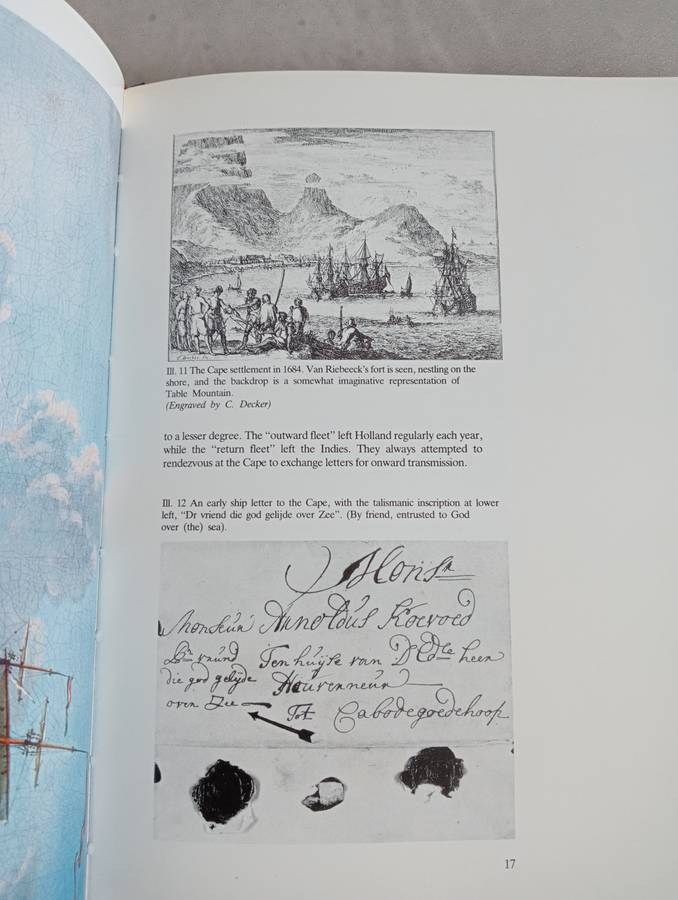 Ill. 11 The Cape settlement in 1684. Van Riebeeck's fort is seen, nestling on the
shore, and the backdrop is a somewhat imaginative representation of
Table Mountain.
(Engraved by C. Decker)
to a lesser degree. The "outward fleet" left Holland regularly each year,
while the "return fleet" left the Indies. They always attempted to
rendezvous at the Cape to exchange letters for onward transmission.
Ill. 12 An early ship letter to the Cape, with the talismanic inscription at lower
left, "Dr vriend die god gelijde over Zee". (By friend, entrusted to God
over (the) sea).
Monsr
Monsieur Arnoldus Koevoed
Dr vriind Ten huijse van D'Edle heer
die god gelijde Gouverneur
over Zee Tot Cabodegoedehoop
17